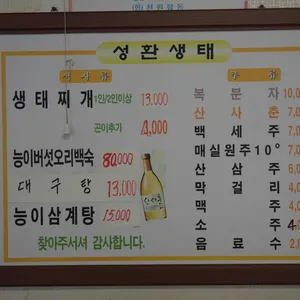 성환생태
식사류
생태찌개 1인/2인이상 13,000
곤이추가 4,000
능이버섯오리백숙 80,000
대구탕 13,000
능이삼계탕 15,000
찾아주셔서 감사합니다.
주류
복분자 10,0
산사춘 7,0
백세주 7,0
매실원주 10° 7,0
산삼주 6,0
막걸리 4,0
맥주 4,0
소주 4
음료수 2,0
산사춘